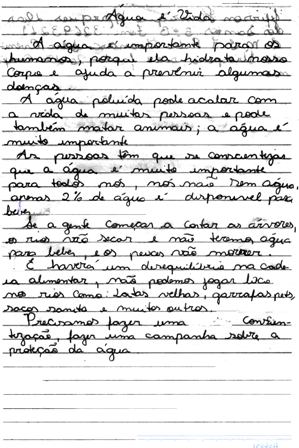 Água é Vida
A água é importante para os
humanos, porque ela hidrata nosso
corpo e ajuda a prevenir algumas
doenças.
A água poluída pode acabar com
a vida de muitas pessoas e pode
também matar animais; a água é
muito importante
As pessoas têm que se conscientizar
que a água é muito importante
para todos nós, nós não sem água,
apenas 2% de água é disponivel para
beber.
Se a gente começar a cortar as árvores,
os rios vão secar e não teremos agua
para beber, e os peixes vão morrer.
E haverá um desequilíbrio na cade
ia alimentar, não podemos jogar lixo
no rios como: latas velhas, garrafas pets,
sacos e muitos outros.
Precisamos fazer uma conscien-
tização, fazer uma campanha sobre a
proteção da água